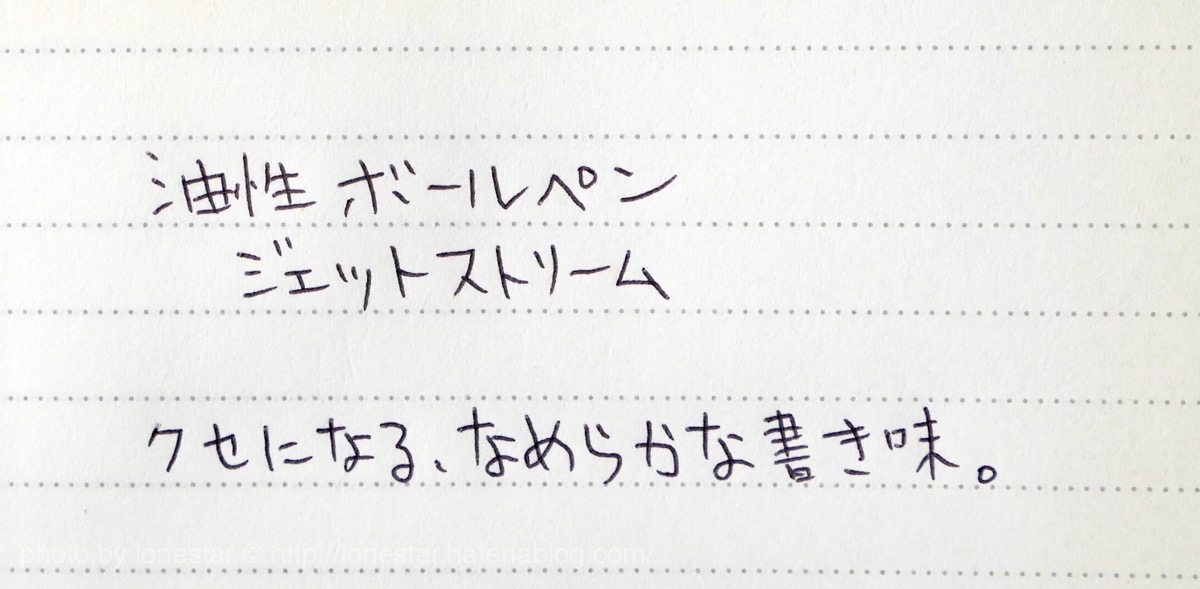 油性 ボールペン
ジェットストリーム
クセになる、なめらかな書き味。
photo by lonestar © http://lonestar.hatenablog.com/